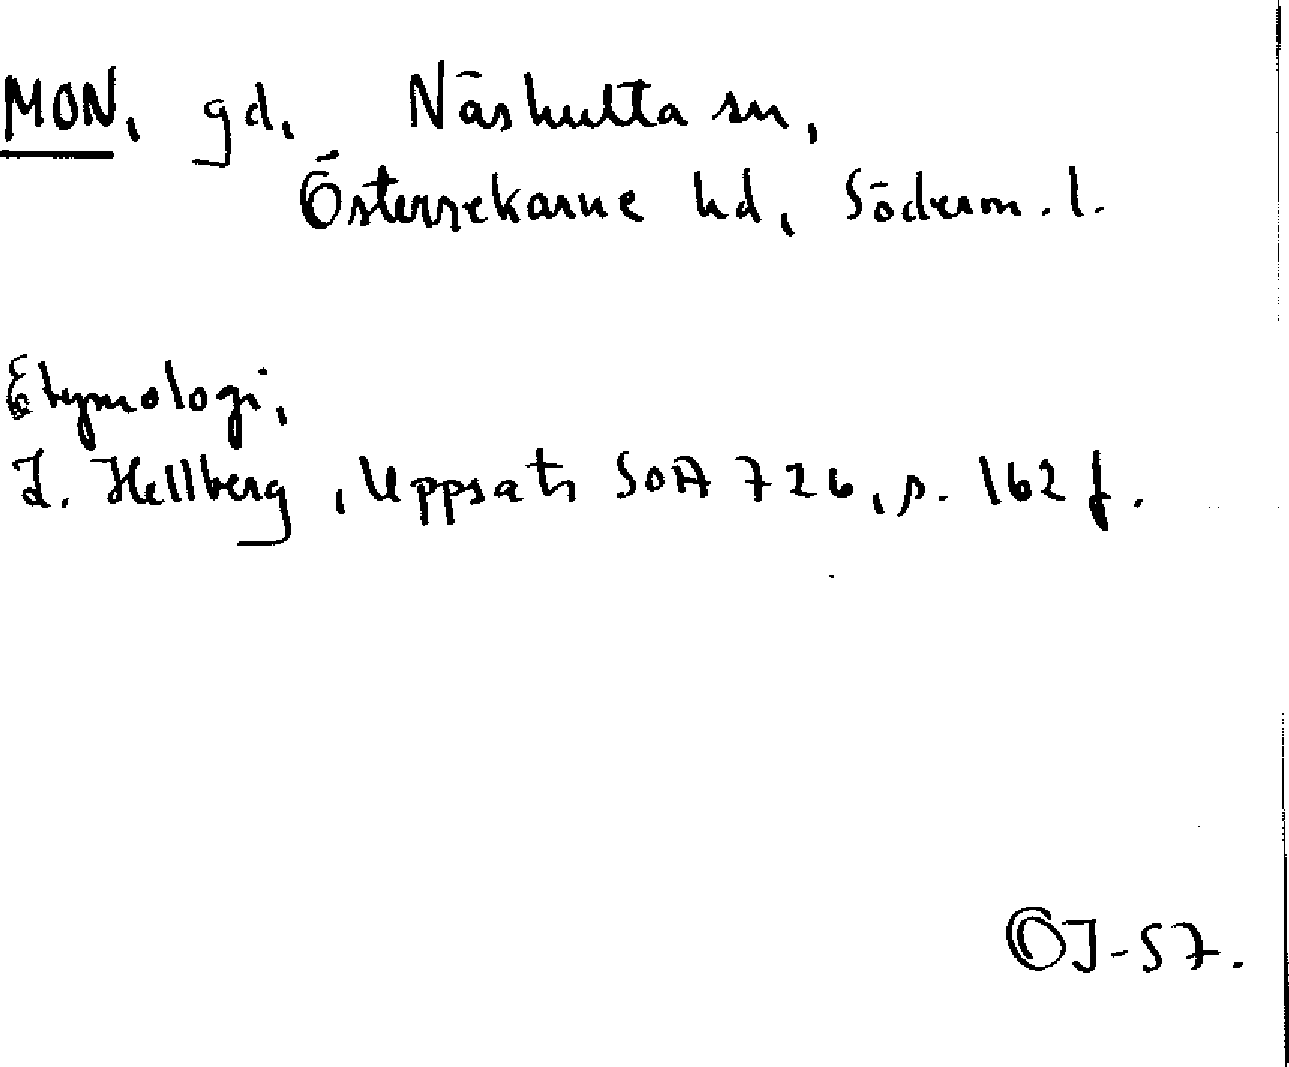 MON, gd, Näshulta sn,
Österrekarne hd, Söderm. l.
Etymologi,
L. Hellberg, Uppsats SOA 726, s. 162 f.
OJ-57.